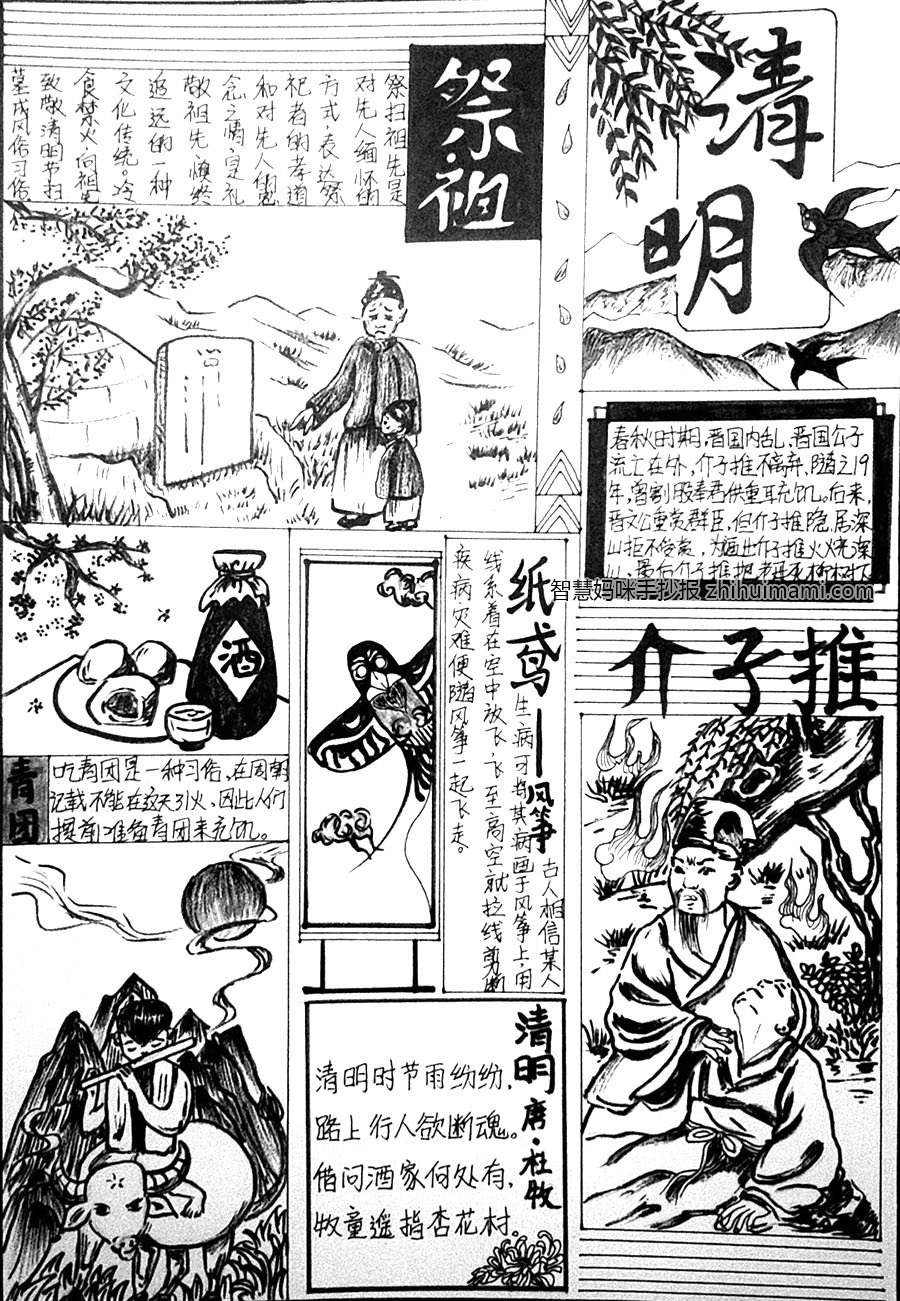 清明
祭祖
祭扫祖先是
对先人缅怀的
方式,表达祭
祀者的孝道
和对先人的思
念之情,是礼
敬祖先慎终
追远的一种
文化传统。冷
食禁火向祖先
致敬清明节扫
墓成风俗习俗
春秋时期,晋国内乱,晋国公子
流亡在外,介子推不离弃,随之19
年,曾割股奉君供重耳充饥。后来,
晋文公重赏群臣,但介子推隐居深
山拒不受赏,为逼出介子推火烧深
山,最后介子推抱老母死柳树下
智慧妈咪手抄报 zhihuimami.com
介子推
酒
青团
吃青团是一种习俗,在周朝
记载不能在这天引火,因此人们
提前准备青团来充饥。
纸鸢——风筝
古人相信某人
生病可将其病画于风筝上,用
线系着在空中放飞,飞至高空就拉线剪断
疾病灾难便随风筝一起飞走。
清明 唐·杜牧
清明时节雨纷纷,
路上行人欲断魂。
借问酒家何处有,
牧童遥指杏花村。